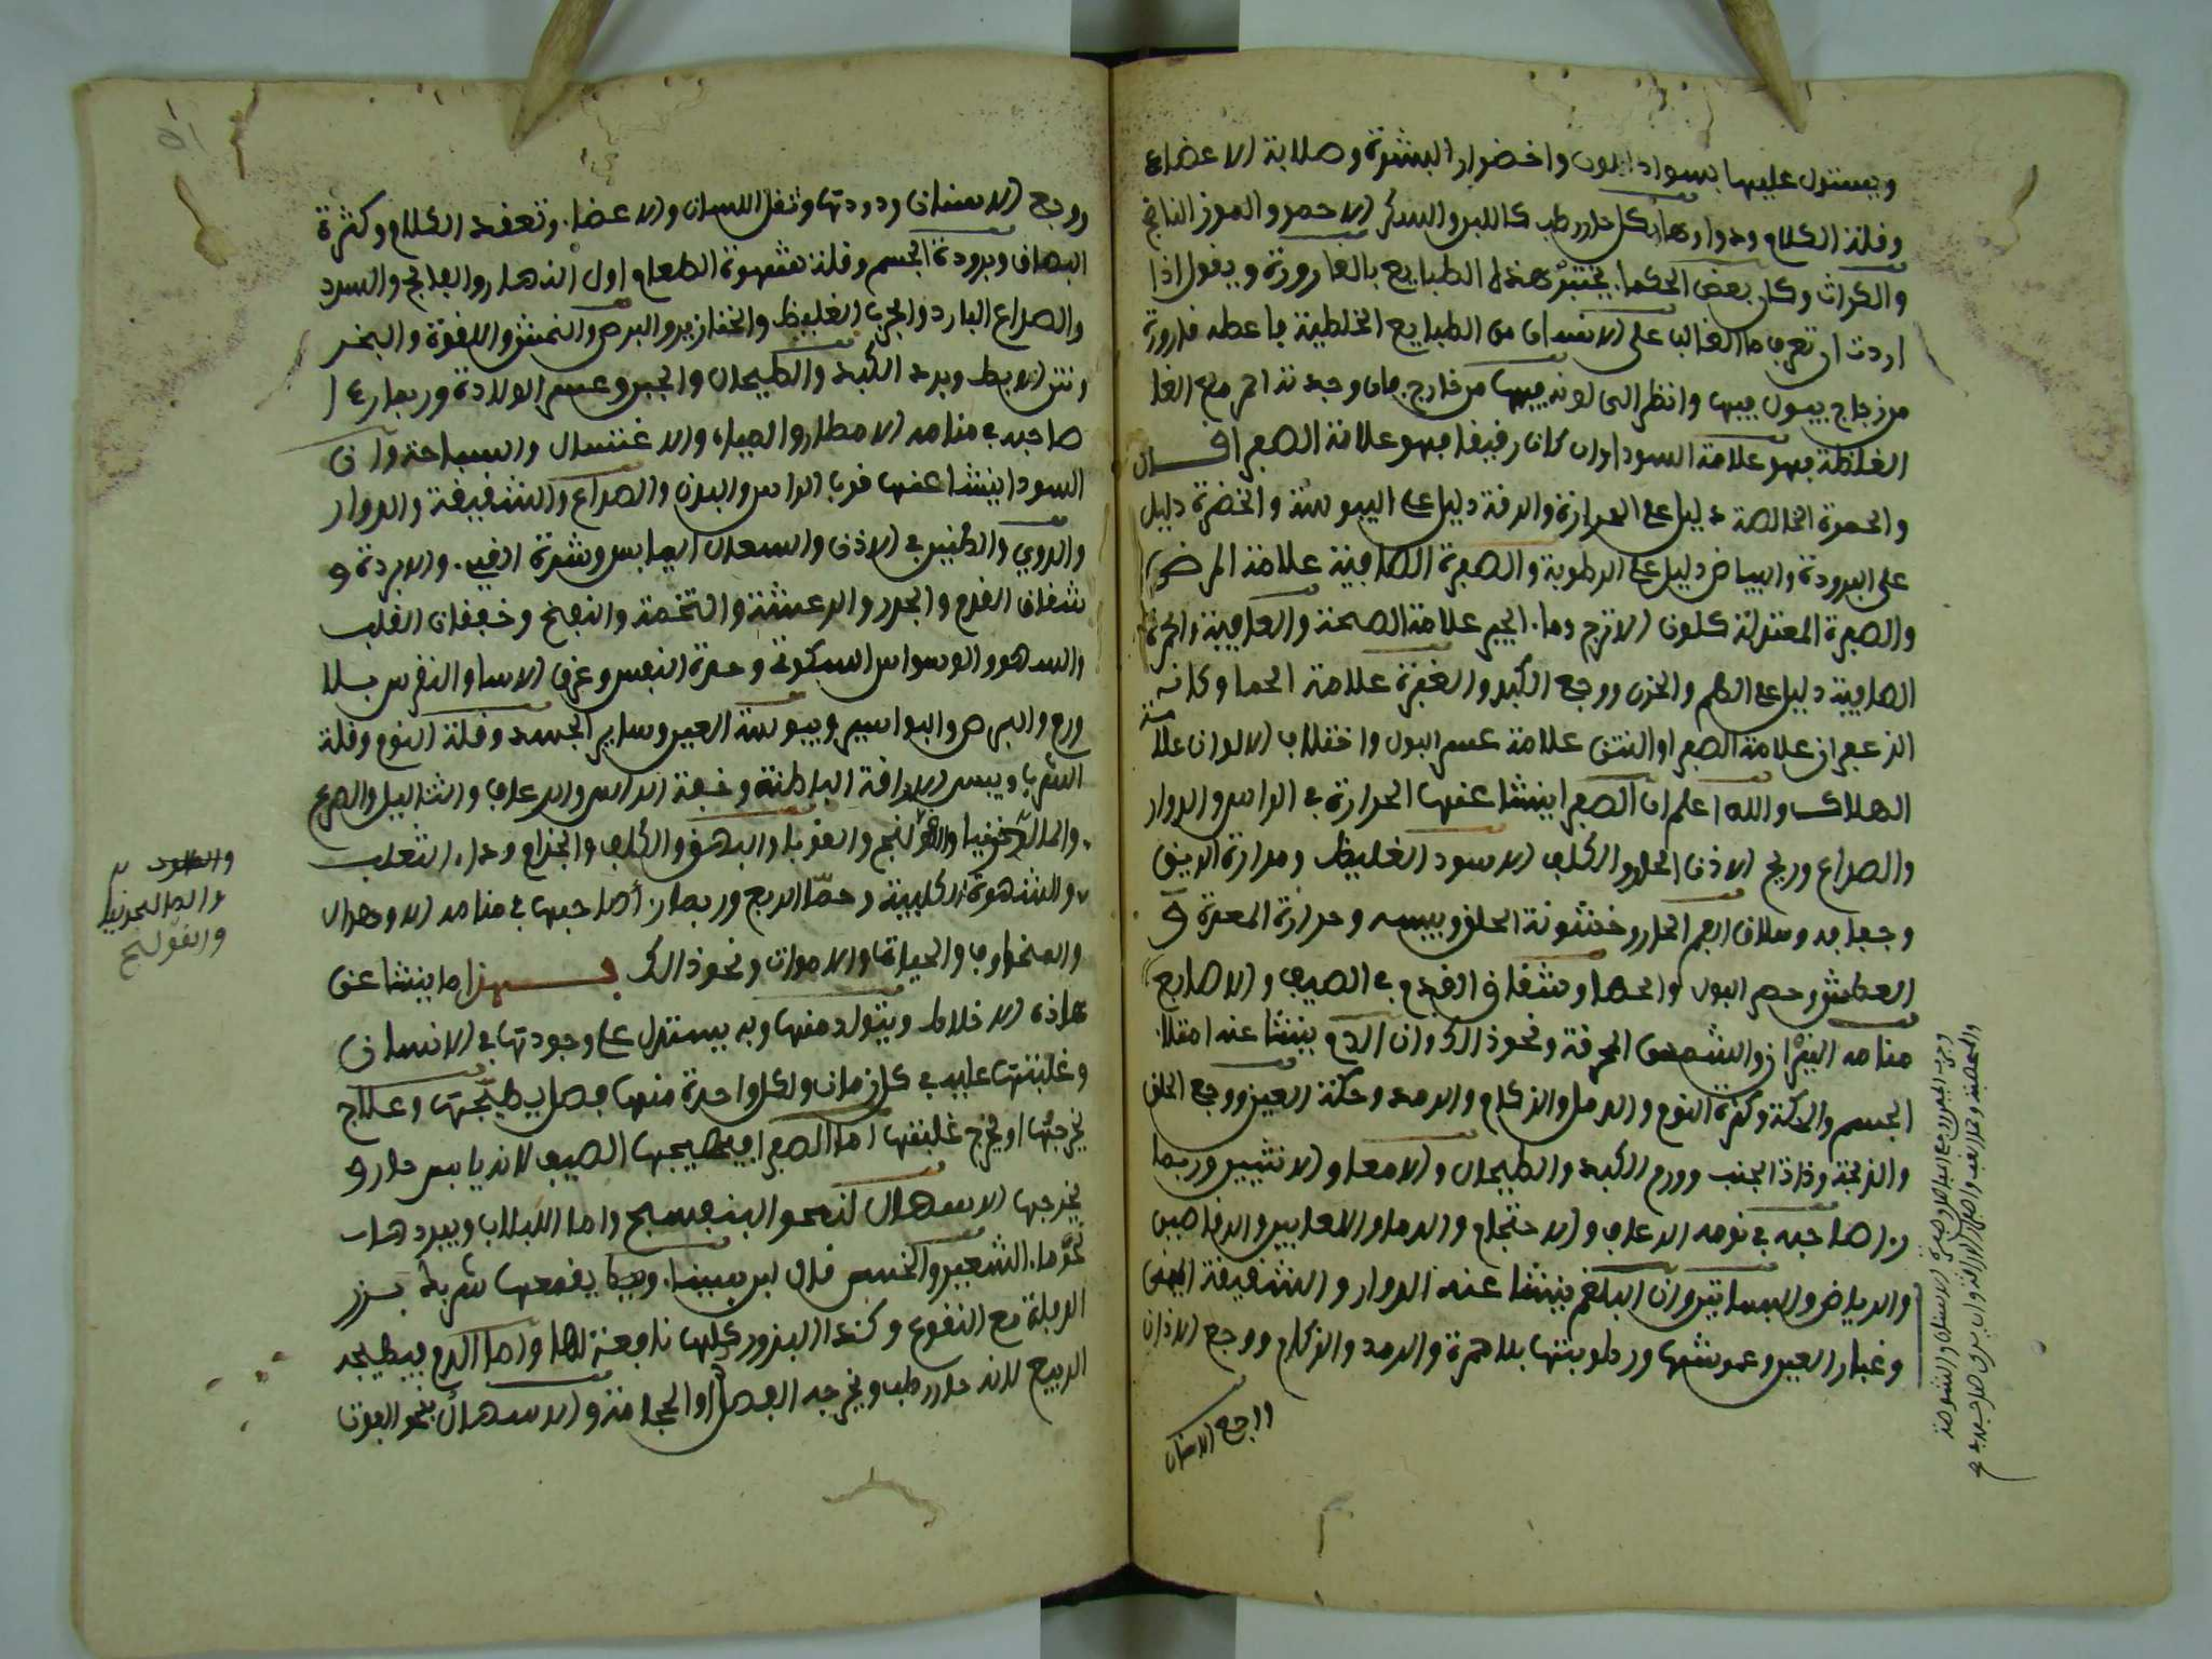 ويستدل عليها بسواد اللون واخضرار البشرة وصلابة الاعضاء
وقلة الكلام ودواوها بكل حار رطب كاللبن والسكر الاحمر والموز الناضج
والكراث وكان بعض الحكماء يختبر هذه الطبايع بالقارورة ويقول اذا
اردت ان تعرف ما الغالب على الانسان من الطبايع الخلطية فاعطه قارورة
من زجاج يبول فيها وانظر الى لونه فيها من خارج فان وجدته احمر مع
الغلظة فهو علامة السودا وان كان رقيقا فهو علامة الصفرا قال
والحمرة الخالصة دليل على الحرارة والرقة دليل على اليبوسة والخضرة دليل
على البرودة والبياض دليل على الرطوبة والصفرة الصافية علامة المرض
والصفرة المعتدلة كلون الاترج وماء علامة الصحة والعافية والحمرة
الصافية دليل على الهم والحزن ووجع الكبد والغبرة علامة الحما وكانه
الزعفران علامة الصفرا والنتن علامة عسر البول واختلاف الالوان علامة
الهلاك والله اعلم ان الصفرا ينشا عنها الحرارة في الراس والدوار
والصداع وريح الاذن الحار والكلف الاسود الغليظ ومرارة الريق
وجفافه وسلاق الفم الحار وخشونة الحلق ويبسه وحرارة المعدة و
العطش وحصر البول والحصا وشقاق القدم في الصيف والاصابع
منامه النيران والشمس المحرقة ونحو ذالك وان الدم ينشا عنه امتلاء
الجسم والحكة وكثرة النوم والدمل والزكام والرمد وحكة العين ووجع الحلق
والذبحة وذات الجنب وورم الكبد والطيحال والامعا والانثيين وربما
راى صاحبه في نومه الرعاف والاحتجام والدماء والرقاصين
والرياض والبساتين وان البلغم ينشا عنه الدوار والشقيقة
وغبار العين وعموشها ورطوبتها بلا حمرة والرمد والزكام ووجع الاذن
ووجع الاسنان
ووجع الاسنان ودودتها وثقل اللسان والاعضاء وتعقد الكلام وكثرة
البصاق وبرودة الجسم وقلة شهوة الطعام اول النهار والفالج والسدد
والصداع البارد والجرب الغليظ والخنازير والبرص والنمش واللقوة والبخر
ونتن الابط وبرد الكبد والطيحال والجبن وعسر الولادة وربما رءا
صاحبه في منامه الامطار والمياه والاغتسال والسباحة وان
السودا ينشا عنها قرب الراس والبدن والصداع والشقيقة والدوار
والدوي والطنين في الاذن والسعال اليابس وشدة القيء والابردة و
شقاق القدم والجدر والرعشة والتخمة والنفخ وخفقان القلب
والسهو والوسواس السكوتي وحدة النفس وعرق الانسا والنقرس بلا
ورم والبرص والبواسير ويبوسة العين وساير الجسد وقلة النوم وقلة
الشرب ويبس الاراقة الباطنة وخفة الراس والرعاف والثاليل والصرع
والمالخونيا والقولنج والقوبا والبهق والكلف والجذام وداء الثعلب
والشهوة الكلبية وحما الربع وربما راى صاحبها في منامه الاوحال
والمخاوف والحياة والاموات ونحو ذالك فهذا ما ينشا عن
هاذه الاخلاط ويتولد منها وبه يستدل على وجودتها في الانسان
وغلبتها عليه في كل زمان ولكل واحدة منها فصل يهيجها وعلاج
يخرجها او يخرج غلبتها اما الصفرا فيهيجها الصيف لانه يابس حار و
يخرجها الاسهال لنحو البنفسج وماء اللبلاب ويبردها
نحو ماء الشعير والخس قال ابن سينا ومما يقمعها شربة بزر
الرجلة مع النقوع وكذا البزور كلها نافعة لها واما الدم فيهيجه
الربيع لانه حار رطب ويخرجه الفصد او الحجامة والاسهال بنحو الفوت
والمالنخونيا
والقولنج